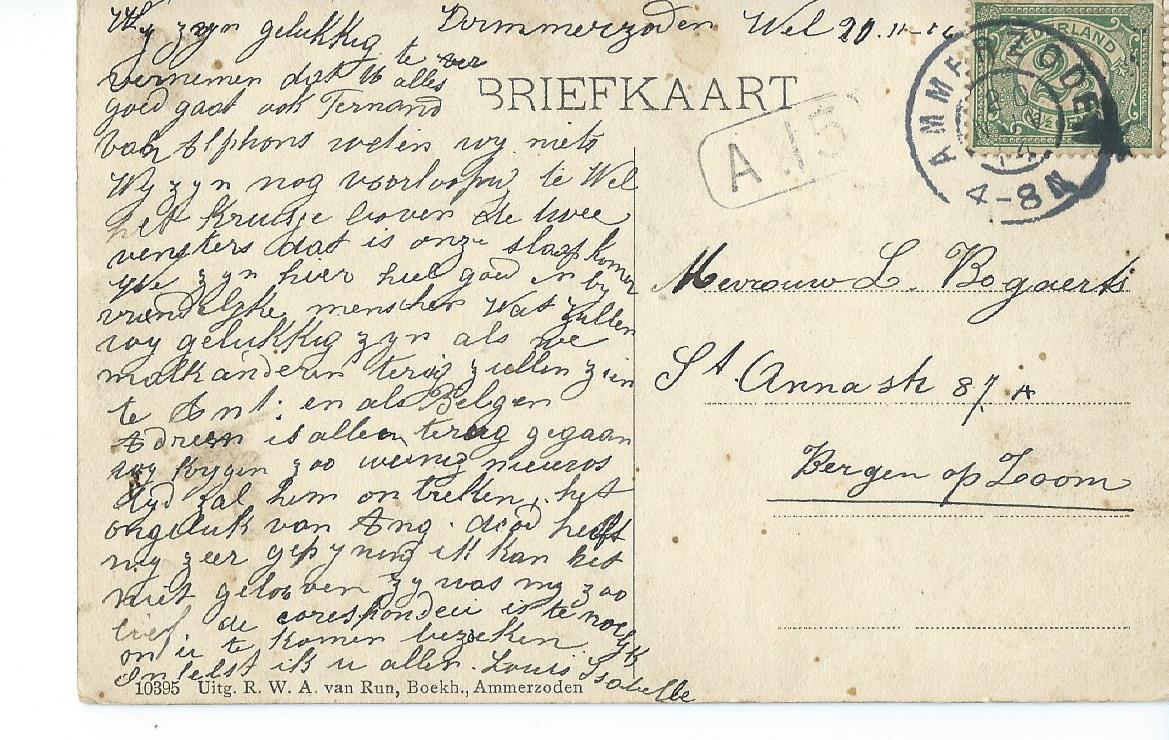 Wy zyn gelukkig te ver
Dommerzoden Wel 20.11-14
vernemen dat U alles
goed gaat ook Fernand
van Alphons weten wy niets
Wy zyn nog voorloopig te Wel
het Kruisje boven de twee
vensters dat is onze slaapkamer
We zyn hier heel goed en by
vriendelyke menschen Wat zullen
wy gelukkig zyn als we
malkanderen terug zullen zien
te Ant: en als Belgen
Adreen is alleen terug gegaan
wy krygen zoo weinig nieuws
tyd zal hem ontreken. het
ongeluk van Ang. dood heeft
my zeer gepynigd ik kan het
niet gelooven zy was my zoo
lief. de corespondei is te moelyk
on u te komen bezoeken.
Omhelst ik u allen. Louis Isabelle
BRIEFKAART
A.15
NEDERLAND
2½
AMMERZODEN
4-8N
Mevrouw L. Bogaerts
St. Anna str 87 A
Bergen op Zoom
10395 Uitg. R. W. A. van Run, Boekh., Ammerzoden